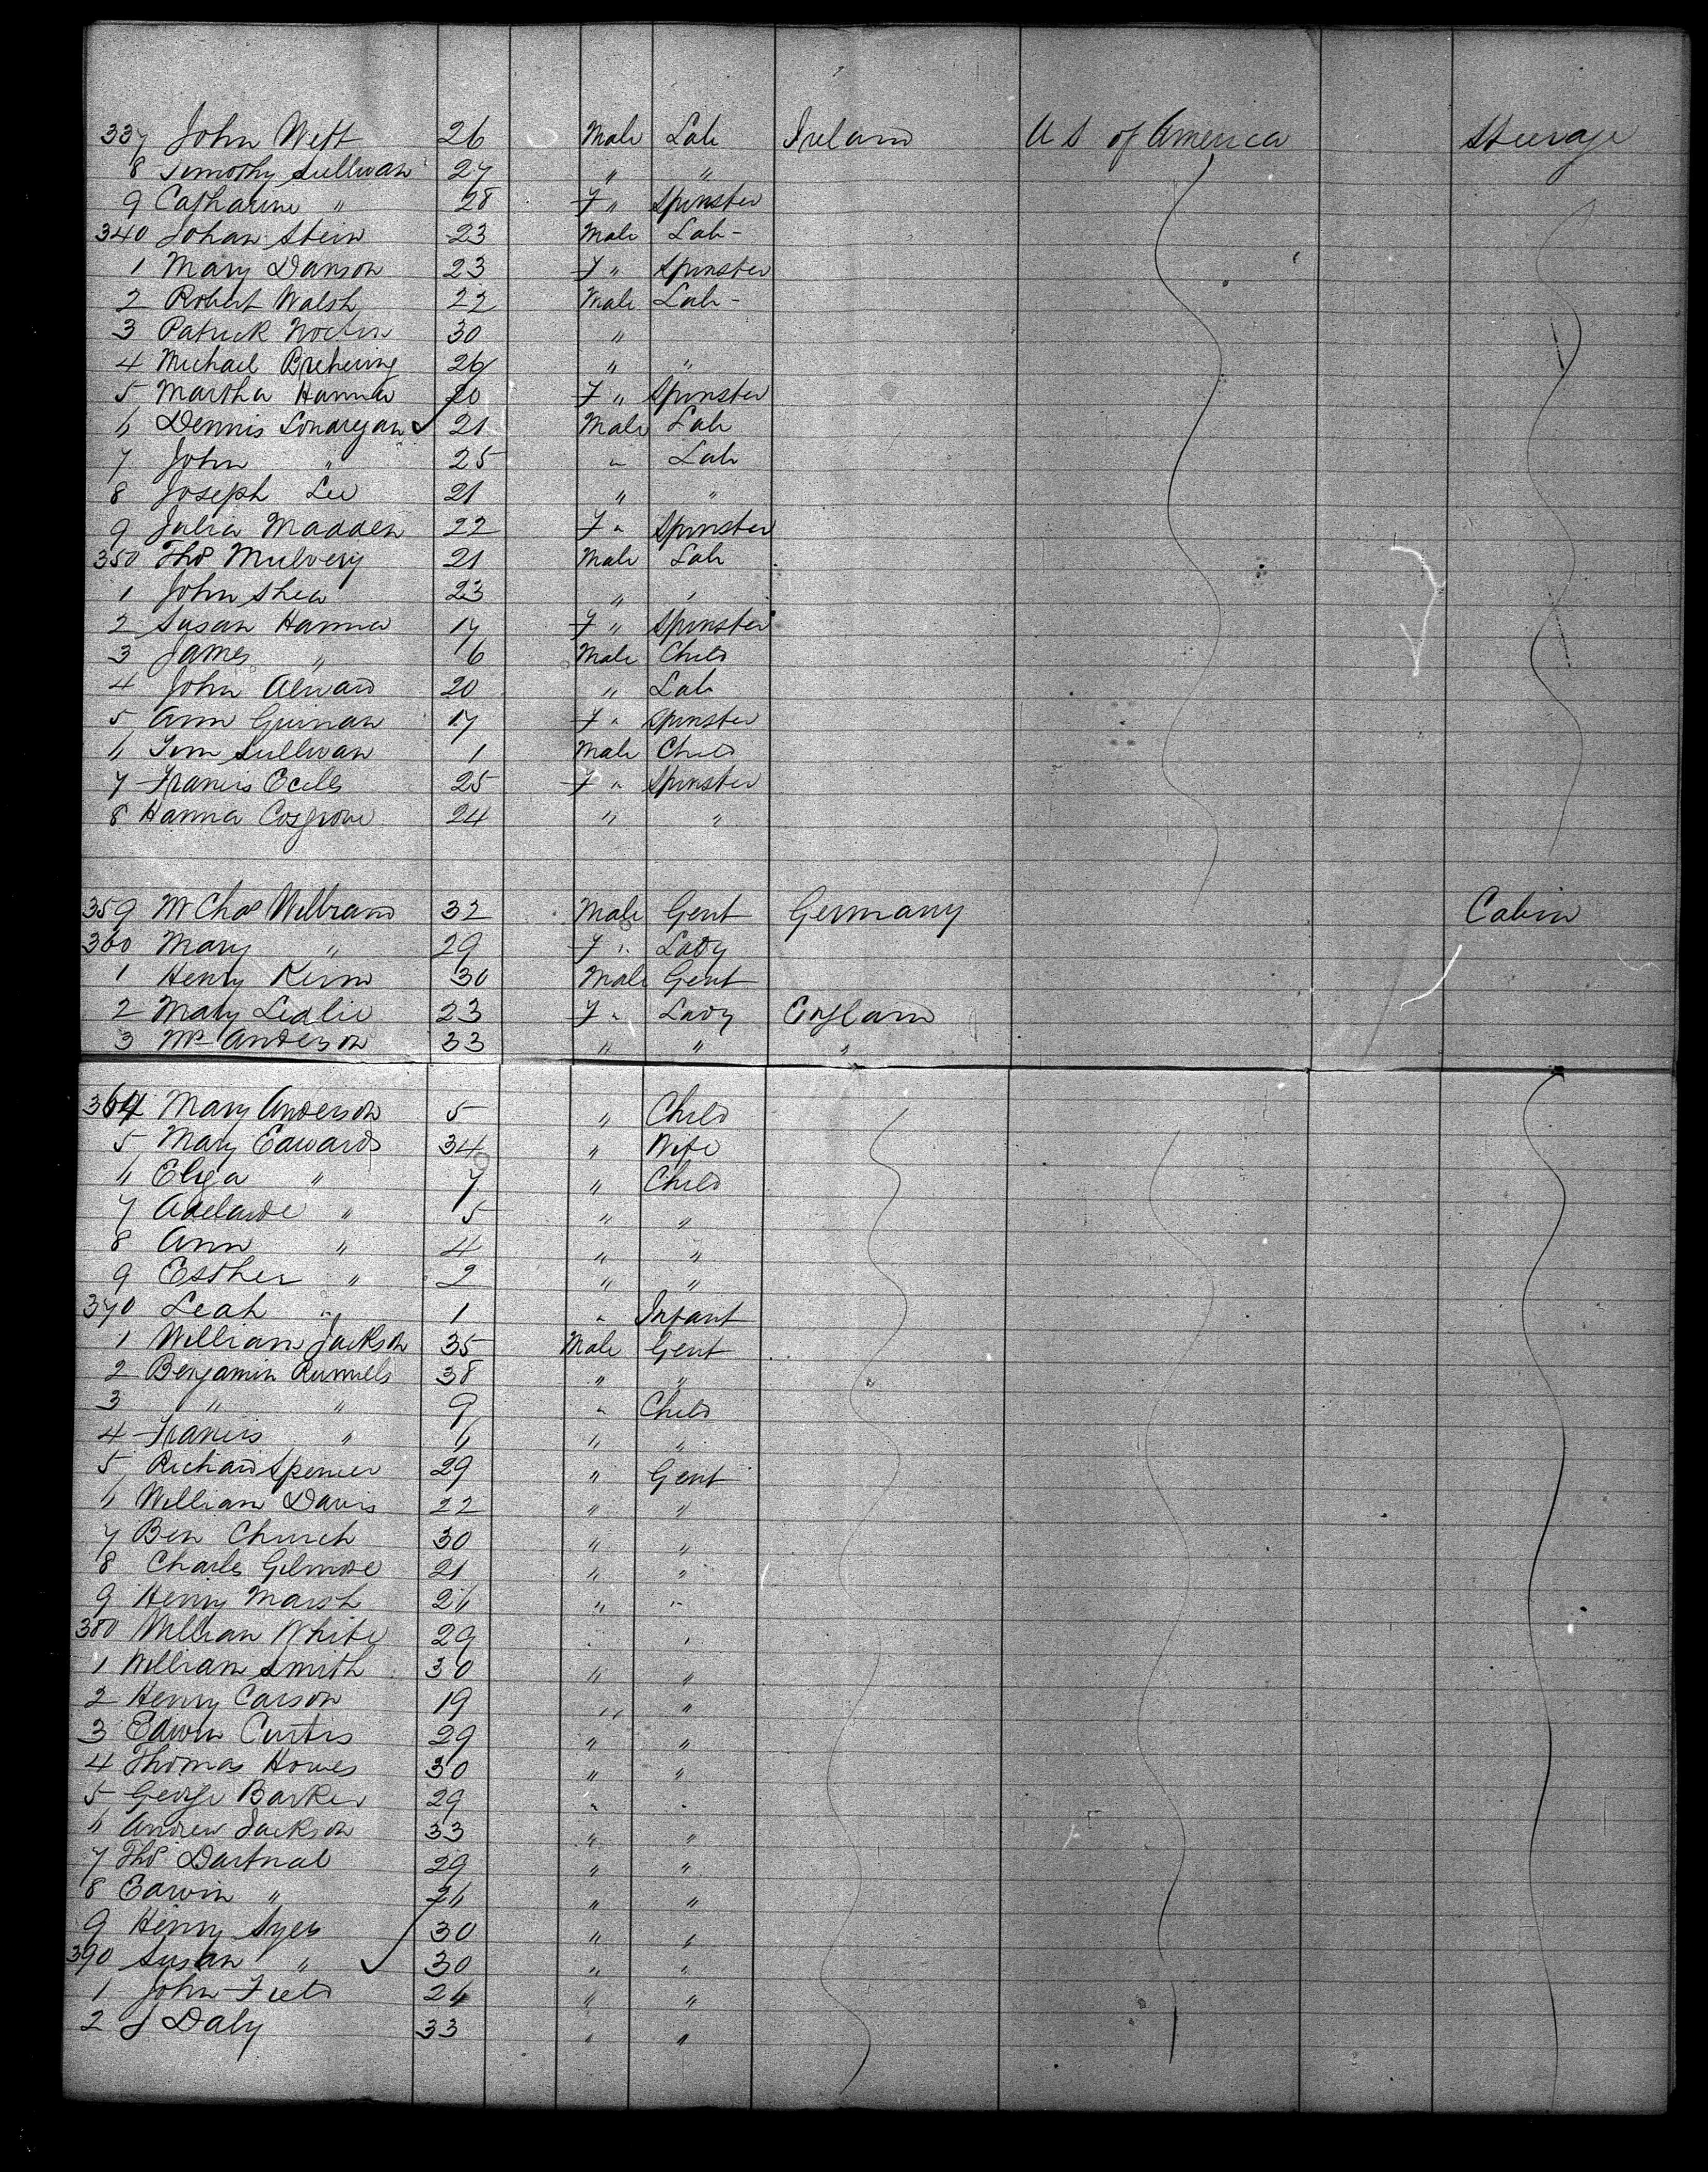 337 John Weft 26 Male Lab Ireland U S of America Steerage
8 Timothy Sullivan 27 " "
9 Catharine " 28 F " Spinster
340 Johan Stein 23 Male Lab -
1 Mary Danson 23 F " Spinster
2 Robert Walsh 22 Male Lab -
3 Patrick 30 "
4 Michael 26 " "
5 Martha Hanna 20 F " Spinster
6 Dennis Lonaregan 21 Male Lab
7 John " 25 " Lab
8 Joseph Lee 21 " "
9 Julia Madden 22 F " Spinster
350 Thos Mulvery 21 Male Lab
1 John Shea 23 " "
2 Susan Hanna 17 F " Spinster
3 James " 6 Male Child
4 John Alward 20 " Lab
5 Ann Guinan 17 F " Spinster
6 Tim Sullivan 1 Male Child
7 Francis Eccles 25 F " Spinster
8 Hanna Cosgrove 24 " "
359 Mr Chas Wilbrand 32 Male Gent Germany Cabin
360 Mary " 29 F " Lady
1 Henry Keim 30 Male Gent
2 Mary Leslie 23 F " Lady England
3 Mrs Anderson 33 " " "
364 Mary Anderson 5 " Child
5 Mary Edwards 34 " Wife
6 Eliza " 7 " Child
7 Adelaide " 5 " "
8 Ann " 4 " "
9 Esther " 2 " "
370 Leah " 1 " Infant
1 William Jackson 35 Male Gent
2 Benjamin Runnels 38 " "
3 " " 9 " Child
4 Francis " 6 " "
5 Richard Spencer 29 " Gent
6 William Davis 22 " "
7 Ben Church 30 " "
8 Charles Gilmore 21 " "
9 Henry Marsh 26 " "
380 William White 29 " "
1 William Smith 30 " "
2 Henry Carson 19 " "
3 Edwin Curtis 29 " "
4 Thomas Howes 30 " "
5 George Barker 29 " "
6 Andrew Jackson 33 " "
7 Thos Dartnal 29 " "
8 Edwin " 26 " "
9 Henry Syer 30 " "
390 Susan " 30 " "
1 John Field 24 " "
2 J Daly 33 " "